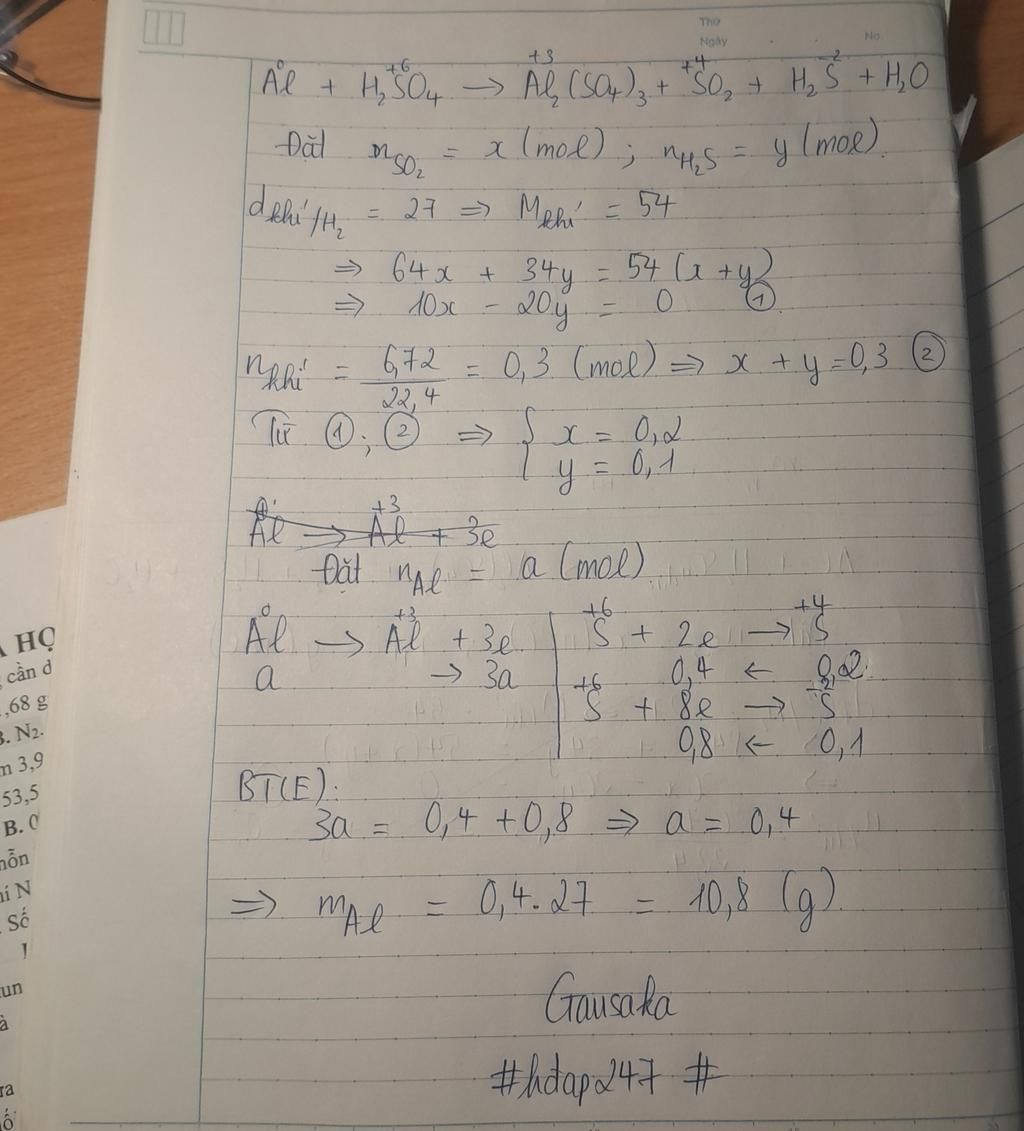 Thứ
Ngày
No.
0 +6 +3 +4 -2
Al + H₂SO₄ → Al₂(SO₄)₃ + SO₂ + H₂S + H₂O
Đặt n_SO₂ = x (mol) ; n_H₂S = y (mol).
d khí/H₂ = 27 ⇒ M khí = 54
⇒ 64x + 34y = 54 (x + y)
⇒ 10x - 20y = 0 ①
n khí = 6,72/22,4 = 0,3 (mol) ⇒ x + y = 0,3 ②
Từ ① ; ② ⇒ { x = 0,2
y = 0,1
0 +3
Al → Al + 3e
Đặt n_Al = a (mol)
0 +3 +6 +4
Al → Al + 3e | S + 2e → S
a → 3a | 0,4 ← 0,2
+6 -2
S + 8e → S
0,8 ← 0,1
BT(E):
3a = 0,4 + 0,8 ⇒ a = 0,4
⇒ m_Al = 0,4.27 = 10,8 (g)
Gausaka
#hdap247 #
A HỌ
cần d
,68 g
B. N₂.
m 3,9
53,5
B. 0
hỗn
hí N
Số
un
à
ra
ố